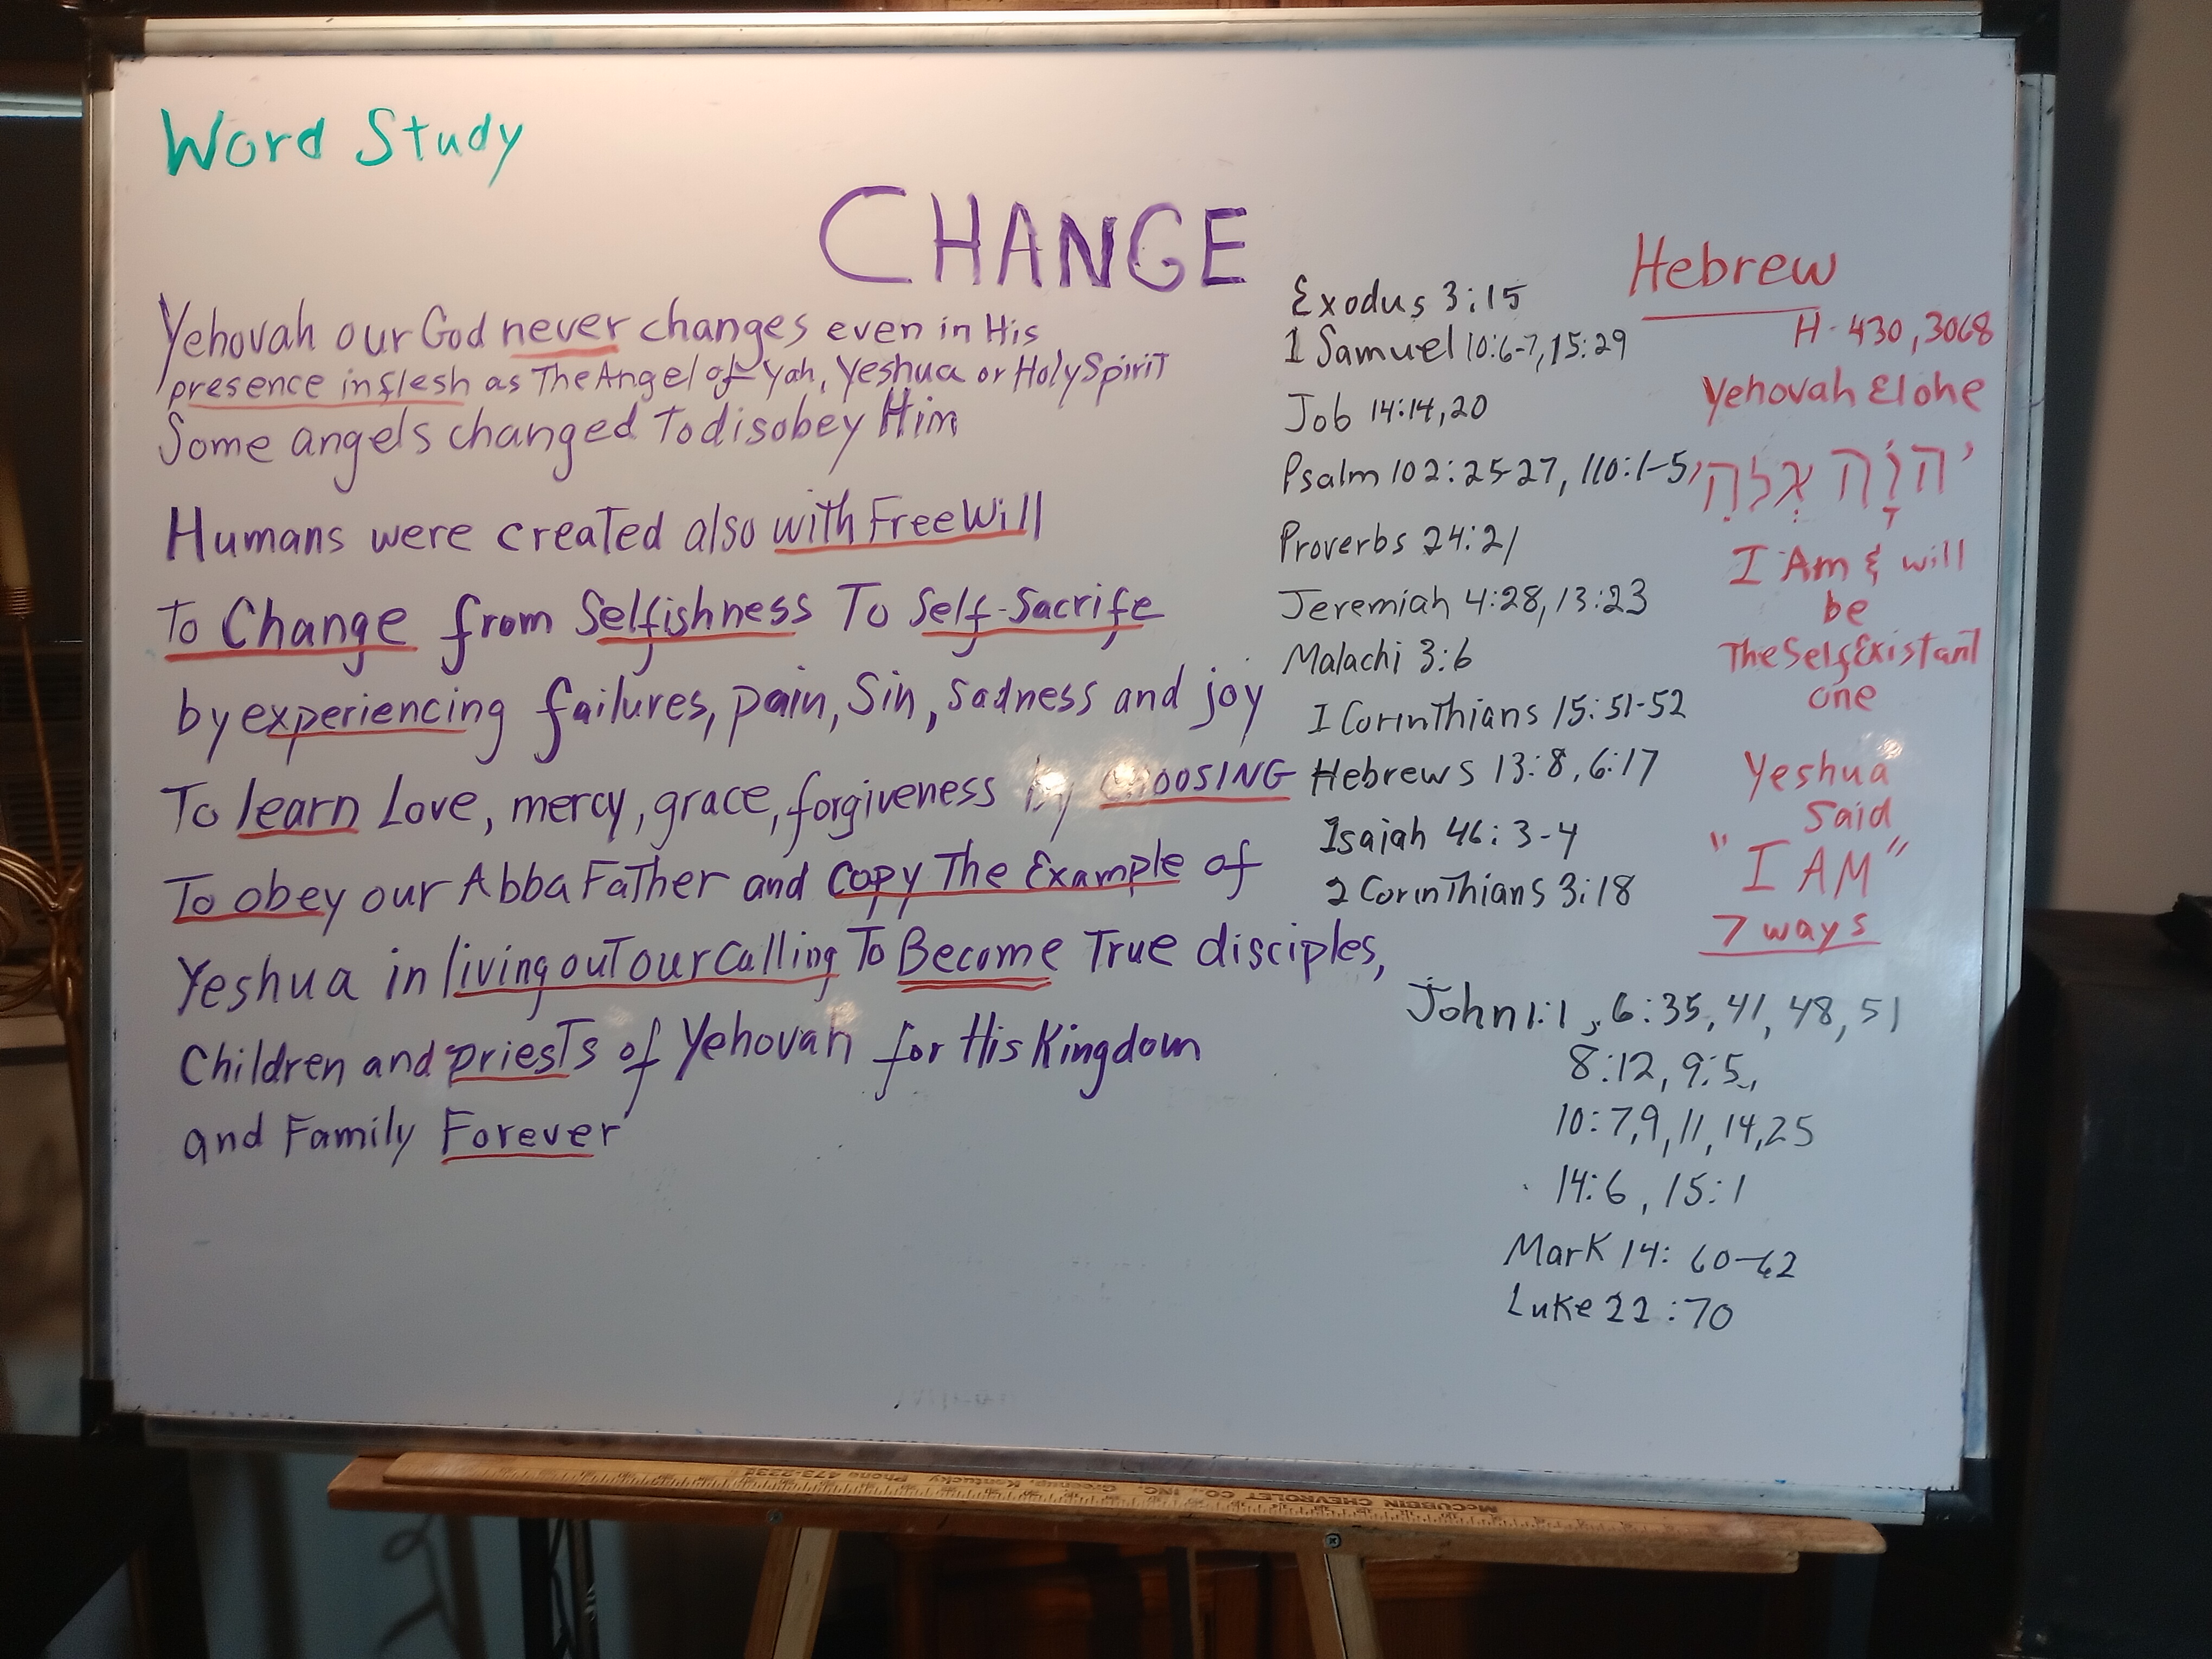 Word Study
CHANGE
Yehovah our God never changes even in His
presence in flesh as The Angel of Yah, Yeshua or Holy Spirit
Some angels changed To disobey Him
Humans were created also with Free Will
To Change from Selfishness To Self-Sacrife
by experiencing failures, pain, Sin, Sadness and joy
To learn Love, mercy, grace, forgiveness by CHOOSING
To obey our Abba Father and copy The Example of
Yeshua in living out our Calling To Become True disciples,
Children and priests of Yehovah for His Kingdom
and Family Forever
Exodus 3:15
1 Samuel 10:6-7, 15:29
Job 14:14, 20
Psalm 102:25-27, 110:1-5
Proverbs 24:21
Jeremiah 4:28, 13:23
Malachi 3:6
I Corinthians 15:51-52
Hebrews 13:8, 6:17
Isaiah 46:3-4
2 Corinthians 3:18
Hebrew
H-430, 3068
Yehovah Elohe
יהוה אלהי
I Am & will
be
The Self Existant
one
Yeshua
Said
"I AM"
7 ways
John 1:1, 6:35, 41, 48, 51
8:12, 9:5,
10:7,9,11,14,25
14:6, 15:1
Mark 14:60-62
Luke 22:70
McCUBBIN CHEVROLET CO., INC. Greenup, Kentucky Phone 473-